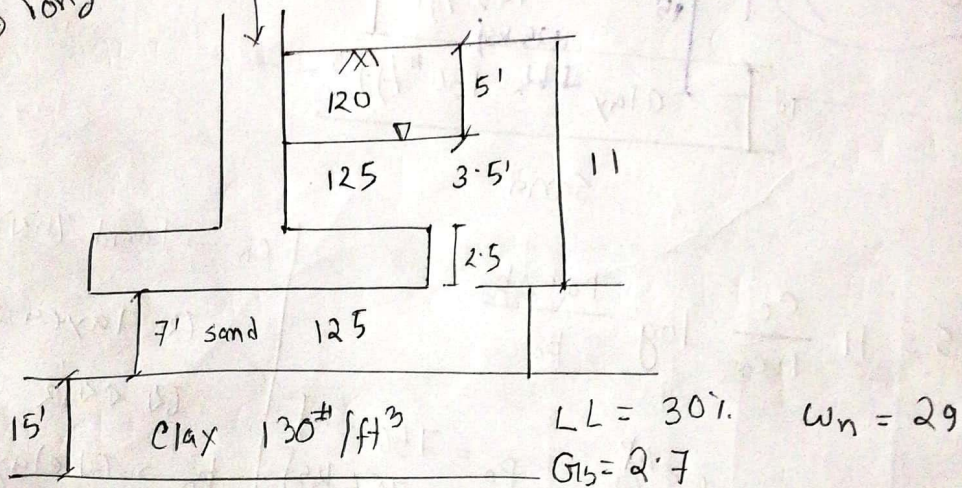 120
5'
125 3.5' 11
2.5
7' sand 125
15' Clay 130#/ft³
LL = 30% ωn = 29
Gs = 2.7